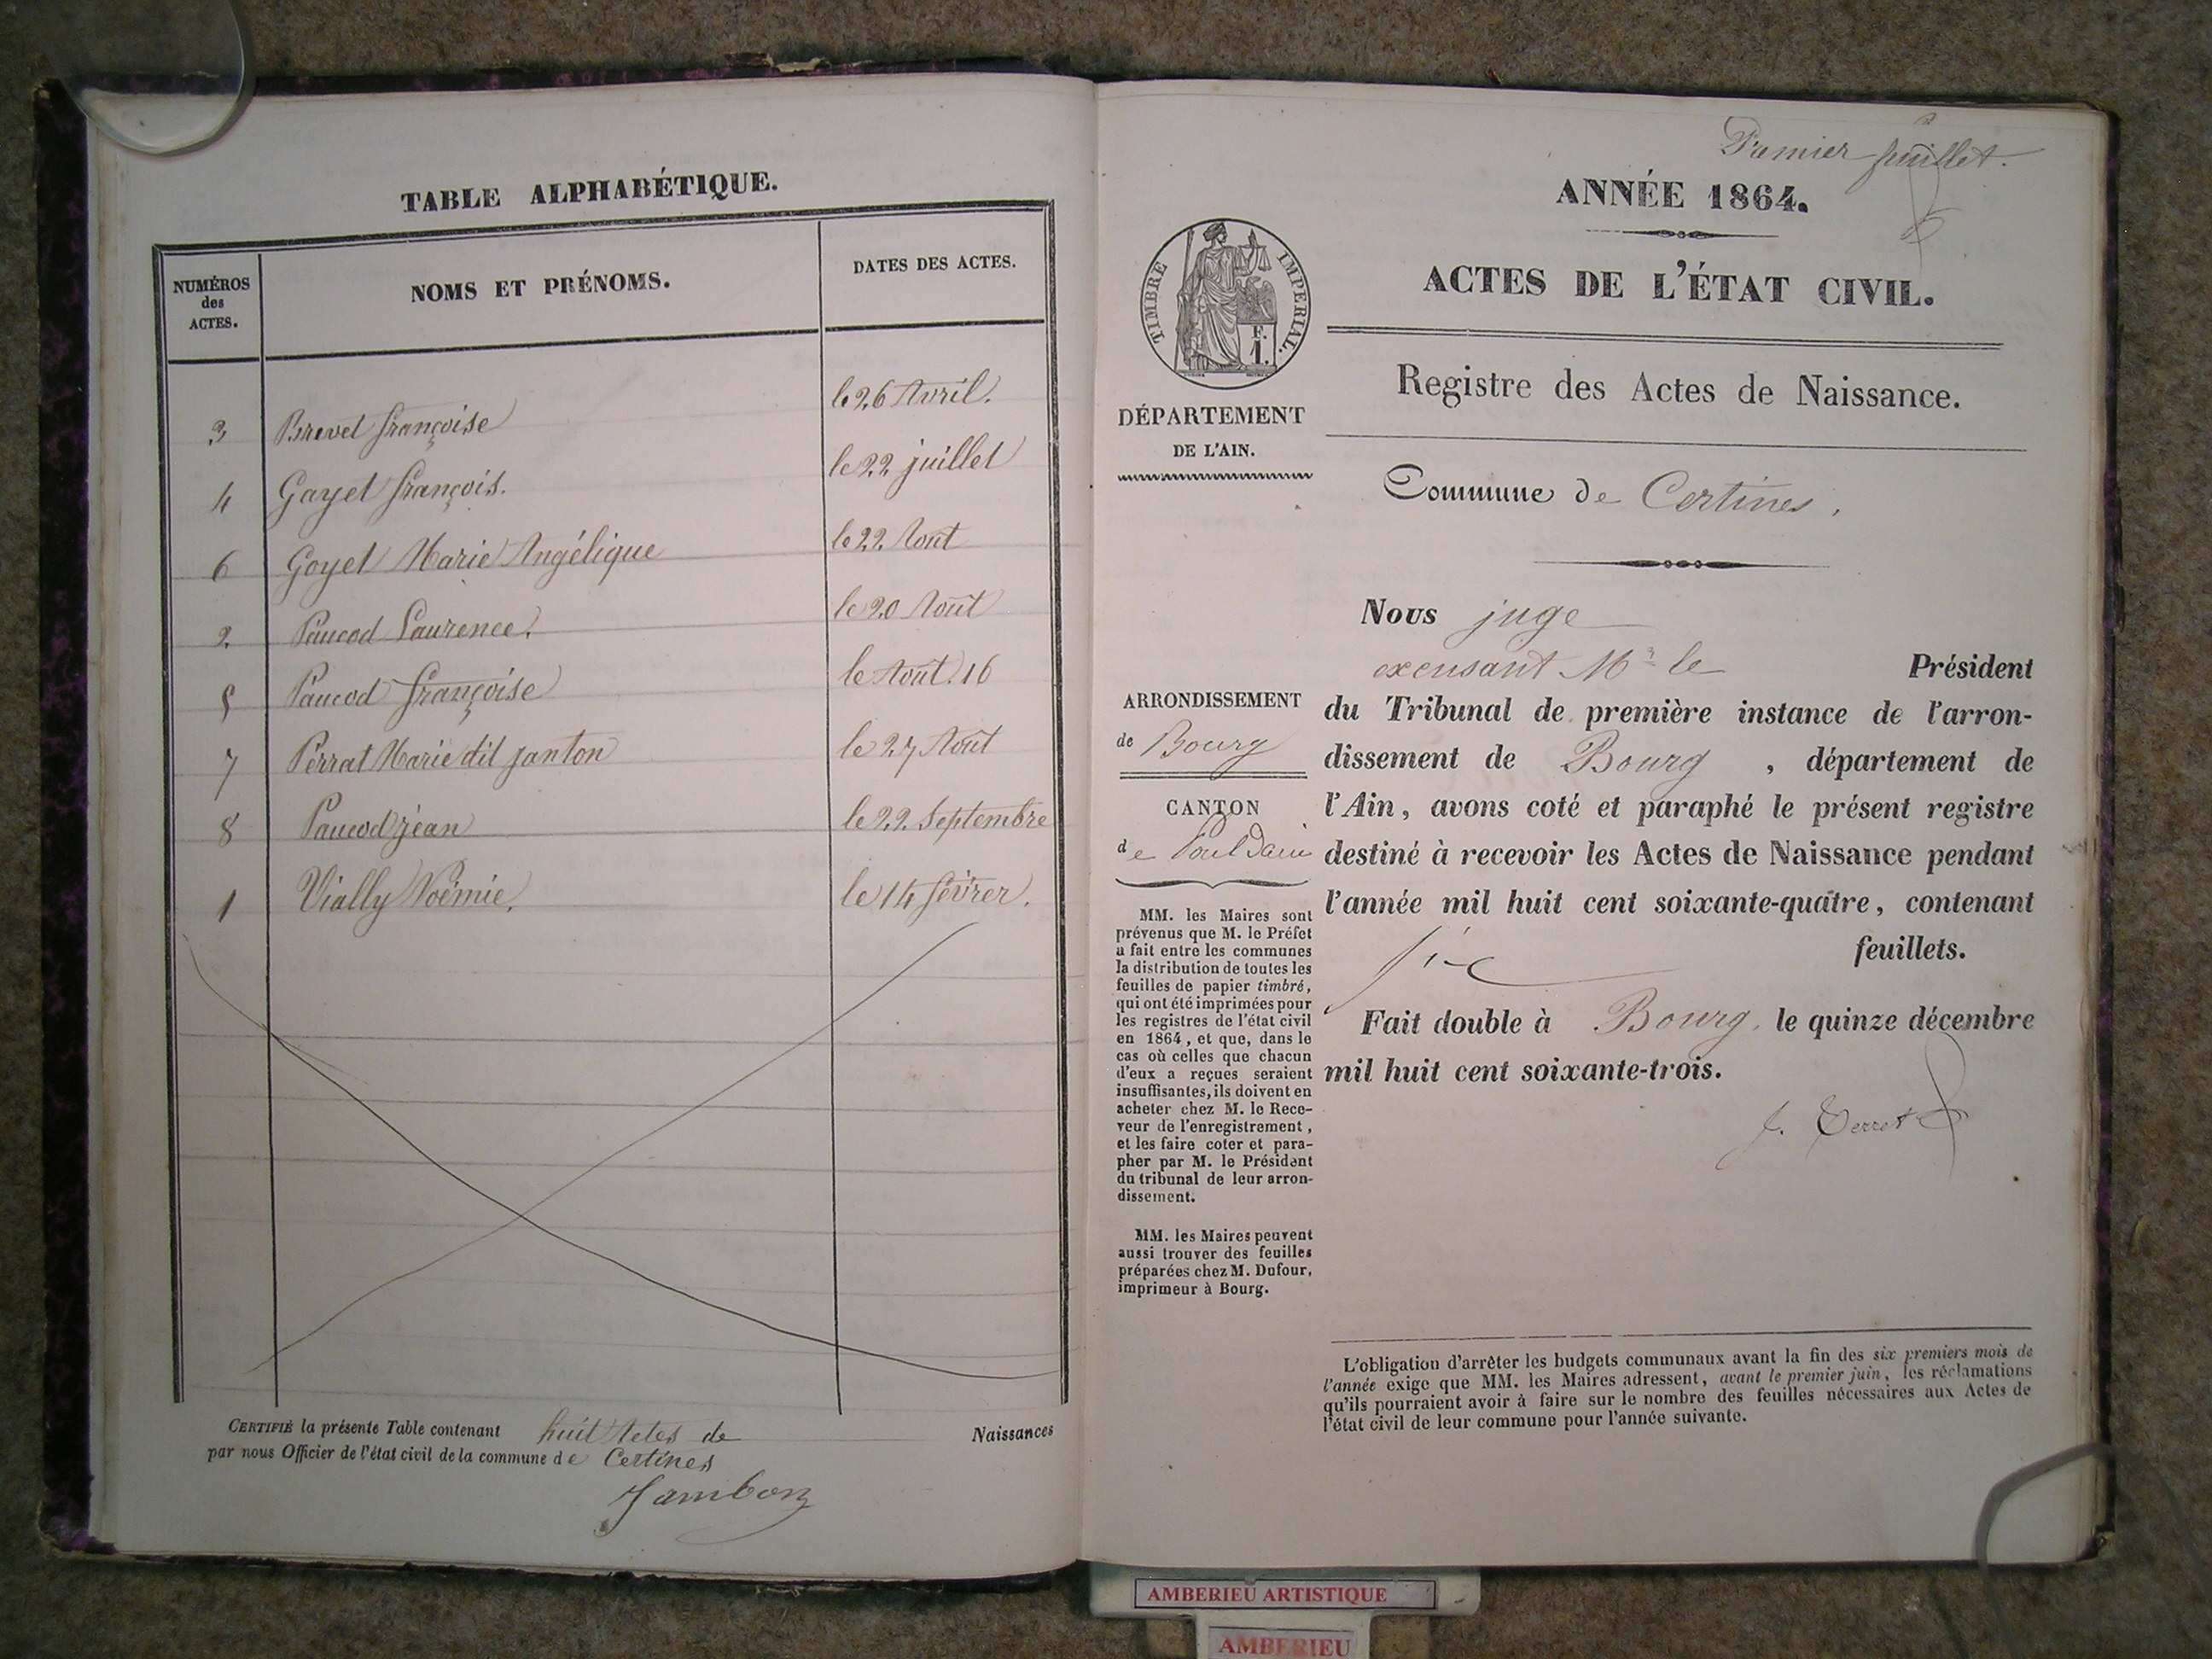 TABLE ALPHABÉTIQUE.
NUMÉROS des ACTES. NOMS ET PRÉNOMS. DATES DES ACTES.
3 Brevet françoise le 26 Avril.
4 Gayet françois. le 22 juillet
6 Goyet Marie Angélique le 22 Aout
2 Paucod Laurence. le 20 Aout
5 Paucod françoise le Aout 16
7 Perrat Marie dit janton le 27 Aout
8 Paucod jean le 22 Septembre
1 Vially Noémie. le 14 févrer.
CERTIFIÉ la présente Table contenant huit Actes de Naissances
par nous Officier de l'état civil de la commune de Certines
Jambon
Premier feuillet.
ANNÉE 1864.
ACTES DE L'ÉTAT CIVIL.
TIMBRE IMPERIAL.
F.
1.
DÉPARTEMENT
DE L'AIN.
Registre des Actes de Naissance.
Commune de Certines.
ARRONDISSEMENT
de Bourg
CANTON
de Pont Dain
MM. les Maires sont
prévenus que M. le Préfet
a fait entre les communes
la distribution de toutes les
feuilles de papier timbré,
qui ont été imprimées pour
les registres de l'état civil
en 1864, et que, dans le
cas où celles que chacun
d'eux a reçues seraient
insuffisantes, ils doivent en
acheter chez M. le Rece-
veur de l'enregistrement,
et les faire coter et para-
pher par M. le Président
du tribunal de leur arron-
dissement.
MM. les Maires peuvent
aussi trouver des feuilles
préparées chez M. Dufour,
imprimeur à Bourg.
Nous juge
excusant Mr le Président
du Tribunal de première instance de l'arron-
dissement de Bourg , département de
l'Ain, avons coté et paraphé le présent registre
destiné à recevoir les Actes de Naissance pendant
l'année mil huit cent soixante-quatre, contenant
six feuillets.
Fait double à Bourg, le quinze décembre
mil huit cent soixante-trois.
L'obligation d'arrêter les budgets communaux avant la fin des six premiers mois de
l'année exige que MM. les Maires adressent, avant le premier juin, les réclamations
qu'ils pourraient avoir à faire sur le nombre des feuilles nécessaires aux Actes de
l'état civil de leur commune pour l'année suivante.
AMBERIEU ARTISTIQUE
AMBERIEU